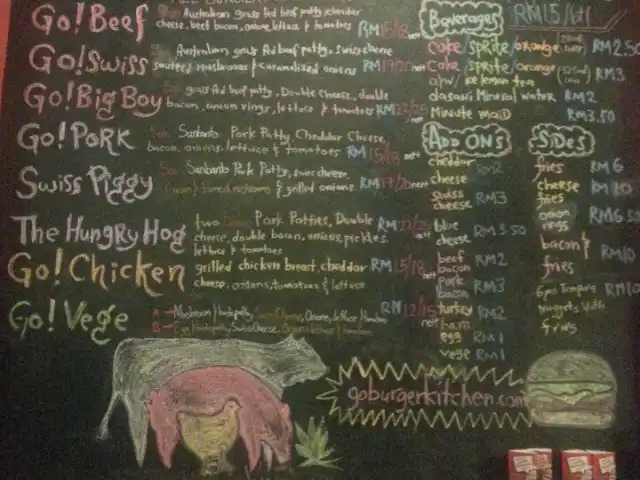 Go! Beef
Australian grass fed beef patty, cheddar
cheese, beef bacon, onion, lettuce & tomatoes RM15/18 nett
Go! Swiss
Australian grass fed beef patty, swiss cheese
sauteed mushrooms & caramalized onions RM17/20 nett
Go! Big Boy
grass fed beef patty, Double cheese, double
bacon, onion rings, lettuce & tomatoes RM22/25 nett
Go! Pork
Pork Patty, Cheddar Cheese,
bacon, onions, lettuce & tomatoes RM15/18 nett
Swiss Piggy
Pork Patty, swiss cheese
& grilled onions RM17/20 nett
The Hungry Hog
two Pork Patties, Double RM22/25 nett
cheese, double bacon, onions, pickles,
lettuce & tomatoes
Go! Chicken
grilled chicken breast, cheddar RM15/18 nett
cheese, onions, tomatoes & lettuce
Go! Vege
A - Mushroom patty, Swiss Cheese, Onions, lettuce RM12/15 nett
B - patty, Swiss Cheese, lettuce
Beverages
RM15/
coke/sprite/orange RM2.50
coke/sprite/orange (325ml) RM3
ice lemon tea
dasani Mineral water RM2
Minute maid RM3.50
Add Ons
cheddar cheese RM2
swiss cheese RM3
blue cheese RM3.50
beef bacon RM2
pork bacon RM3
turkey ham RM2
egg RM1
vege RM1
Sides
fries RM6
cheese fries RM10
onion rings RM6.50
bacon & fries RM10
6pcs Nuggets with fries RM10
goburgerkitchen.com